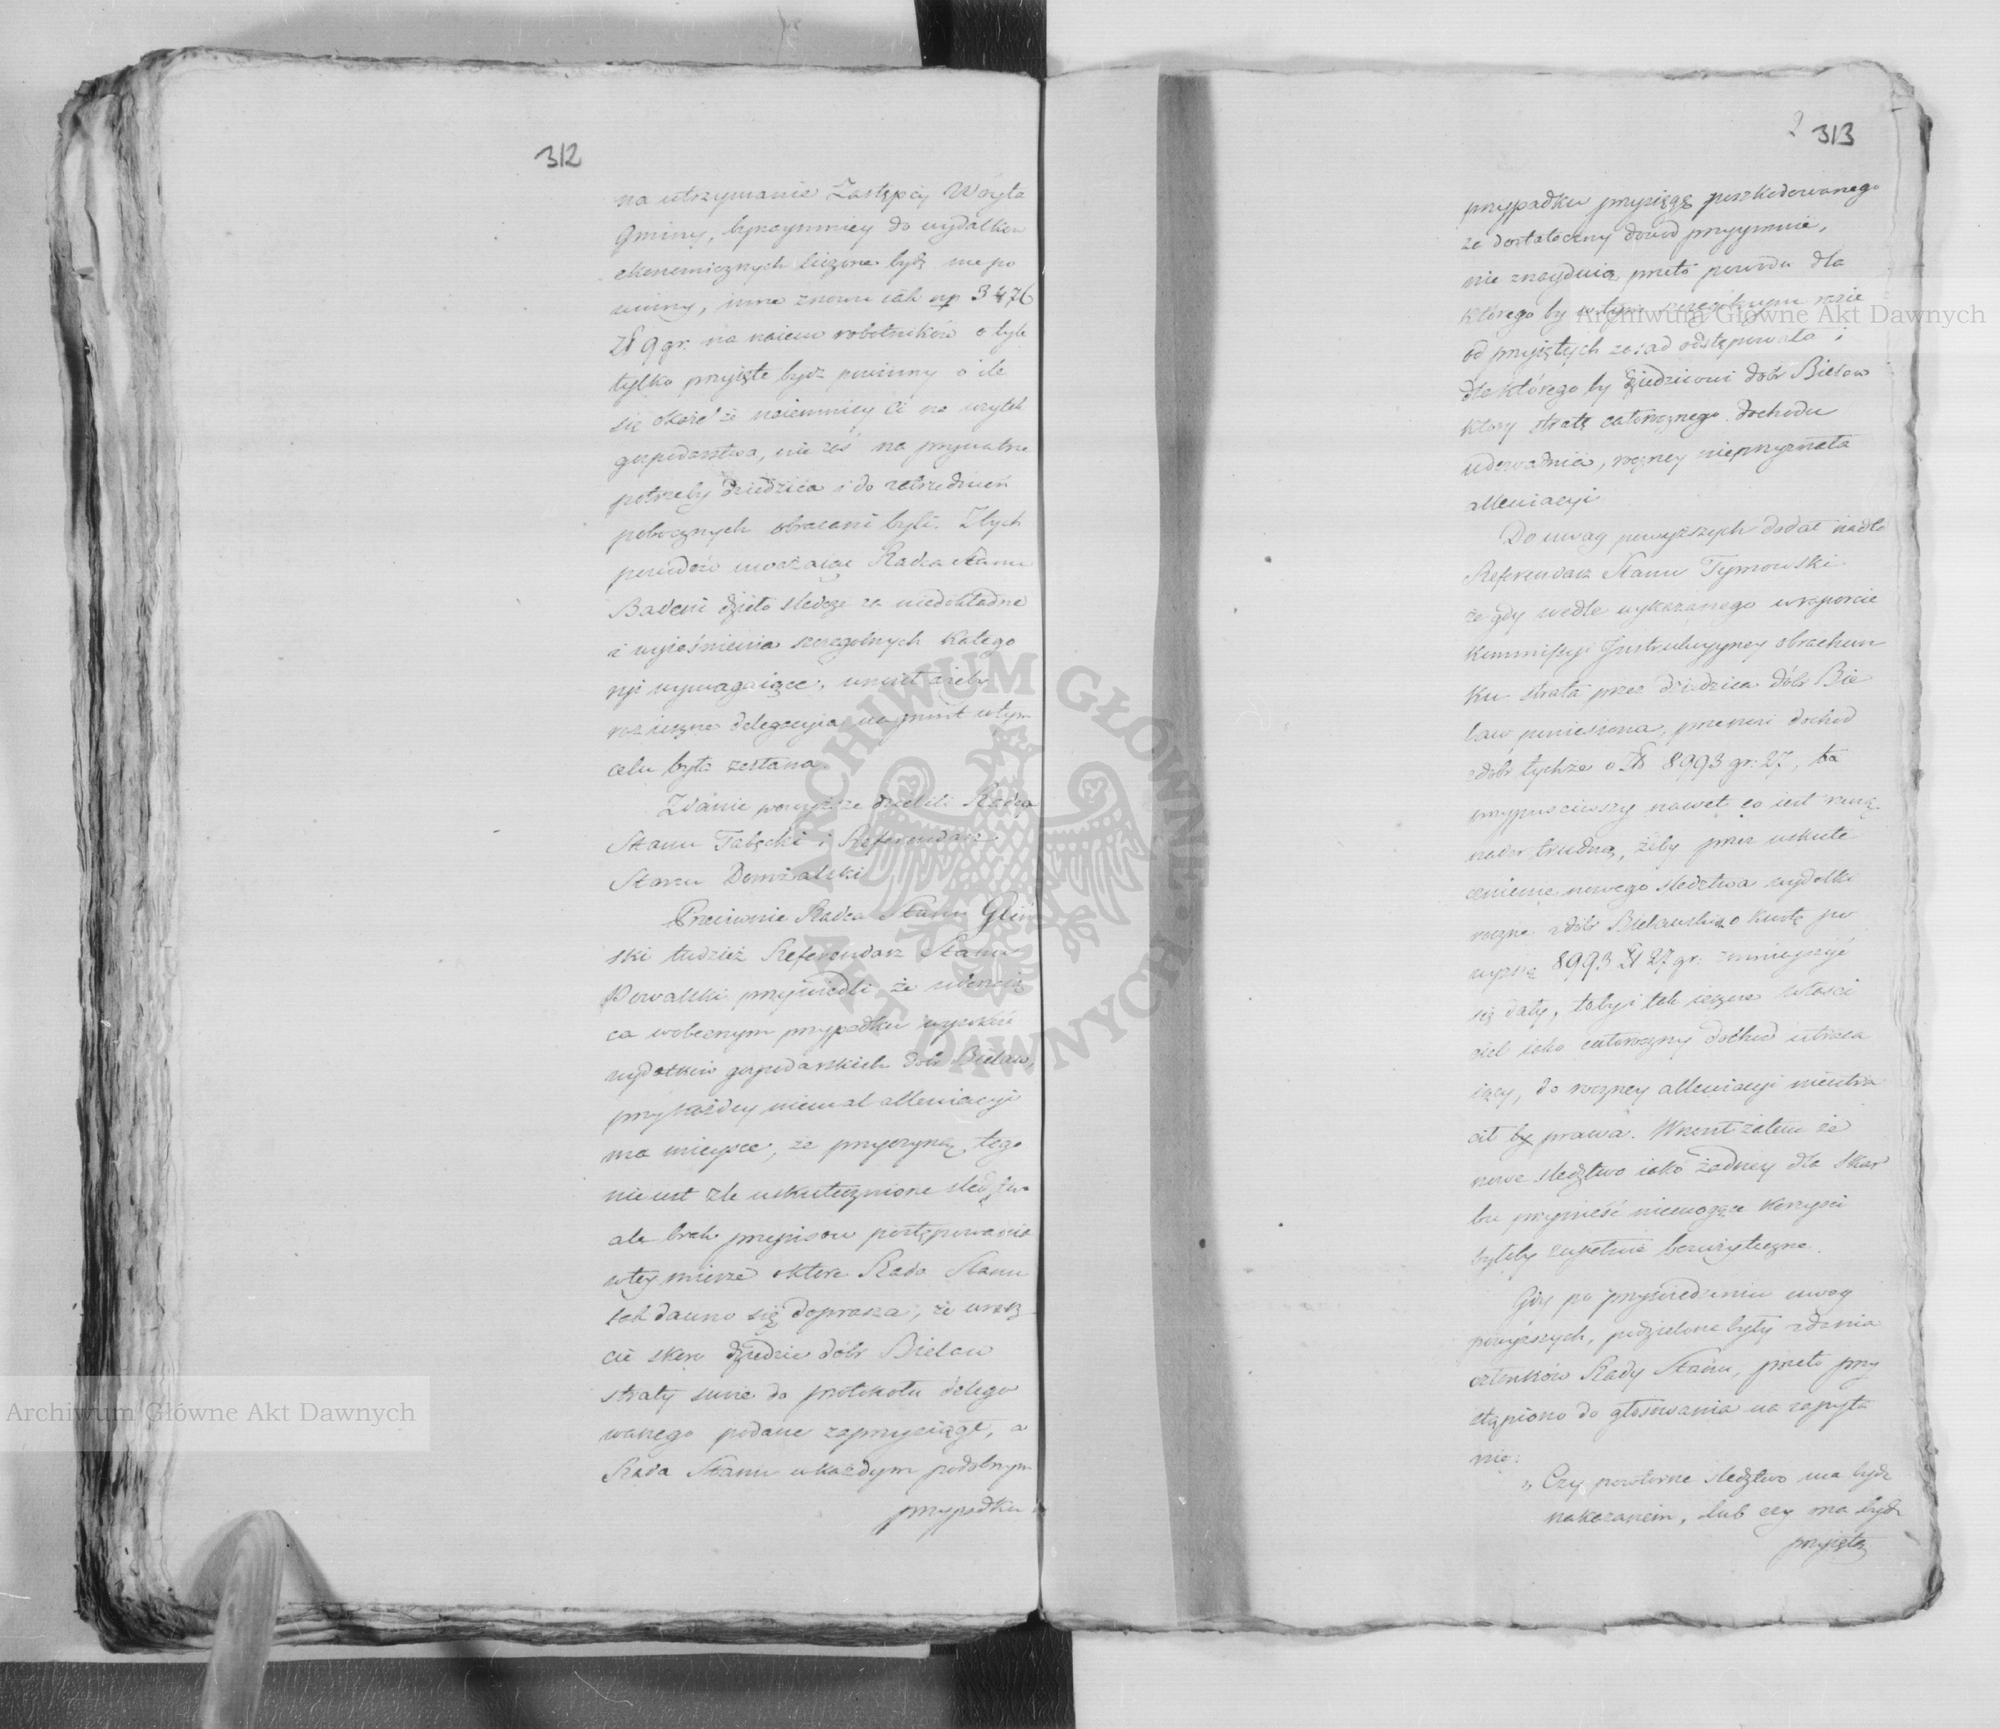 312
na utrzymanie Zastępcy Woyta
Gminy, bynaymniey do wydatków
ekonomicznych liczone bydź nie po
winny, inne znowu iak np 3476
Zł 9 gr. na naiem robotników o tyle
tylko przyięte bydź powinny o ile
się okaże że naiemnicy ci na użytek
gospodarstwa, nie zaś na prywatne
potrzeby dziedzica i do zatrudnień
pobocznych obracani byli. Z tych
powodów uważaiąc Radca Stanu
Badeni dzieło śledcze za niedokładne
i wyiaśnienia szczegolnych katego
ryi wymagaiące, wniósł ażeby
ieszcze delegacyia na grunt w tym
celu była zesłana.
Zdanie powyższe dzielili Radca
Stanu Tabęcki i Referendarz
Stanu Domżalski
Przeciwnie Radca Stanu Gliń
ski tudzież Referendarz Stanu
Kowalski przywiedli że
ca w obecnym przypadku
wydatków gospodarskich dobr Bielaw,
przy każdey niemal alleviacyi
ma mieysce, że przyczyną tego
nie iest źle uskutecznione śledztwo
ale brak przepisow postępowania
w tey mierze o które Rada Stanu
tak dawno się doprasza, że wresz
cie skoro dziedzic dóbr Bielaw
straty swoie do protokołu delego
wanego podane zaprzysiągł, a
Rada Stanu w każdym podobnym
przypadku
313
przypadku przysięgę poszkodowanego
za dostateczny dowod przyymuie,
nie znayduią przeto powodu dla
którego by w tym szczególnym razie
od przyiętych zasad odstępowała i
dla którego by dziedzicowi dobr Bielaw
ktory stratę całorocznego dochodu
udowadnia, roczney nieprzyznała
alleviacyi
Do uwag powyższych dodał nadto
Referendarz Stanu Tymowski
że gdy wedle wykazanego w raporcie
Kommissyi Instrukcyyney obrachun
ku strata przez dziedzica dóbr Bie
law poniesiona, przenosi dochod
z dóbr tychże o Zł 8993 gr: 27, to
przypuściwszy nawet co iest rzeczą
nader trudną, żeby przez uskute
cznienie nowego śledztwa wydatki
roczne z dóbr Bielawskich o kwotę po
wyższą 8993 Zł 27 gr: zmnieyszyć
się dały, to by i tak ieszcze właści
ciel iako całoroczny dochod utraca
iący, do roczney alleviacyi nieutra
cił by prawa. Wniosł zatem że
nowe śledztwo iako żadney dla Skar
bu przynieść niemogące korzyści
byłoby zupełnie bezużyteczne.
Gdy po przywiedzeniu uwag
powyższych, podzielone były zdania
członków Rady Stanu, przeto przy
stąpiono do głosowania na zapyta
nie:
„ Czy powtorne śledztwo ma bydź
nakazanem, lub czy ma bydź
przyiętą
Archiwum Główne Akt Dawnych
Archiwum Główne Akt Dawnych
ARCHIWUM GŁÓWNE AKT DAWNYCH